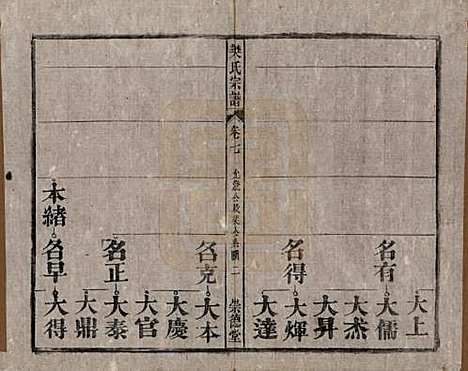 大上
名有 大儒
大杰
大昇
名得 大煇
大達
樊氏宗譜 卷七 系圖 二 崇德堂
名克 大本
大慶
大官
名正 大泰
大鼎
本緒 名早 大得